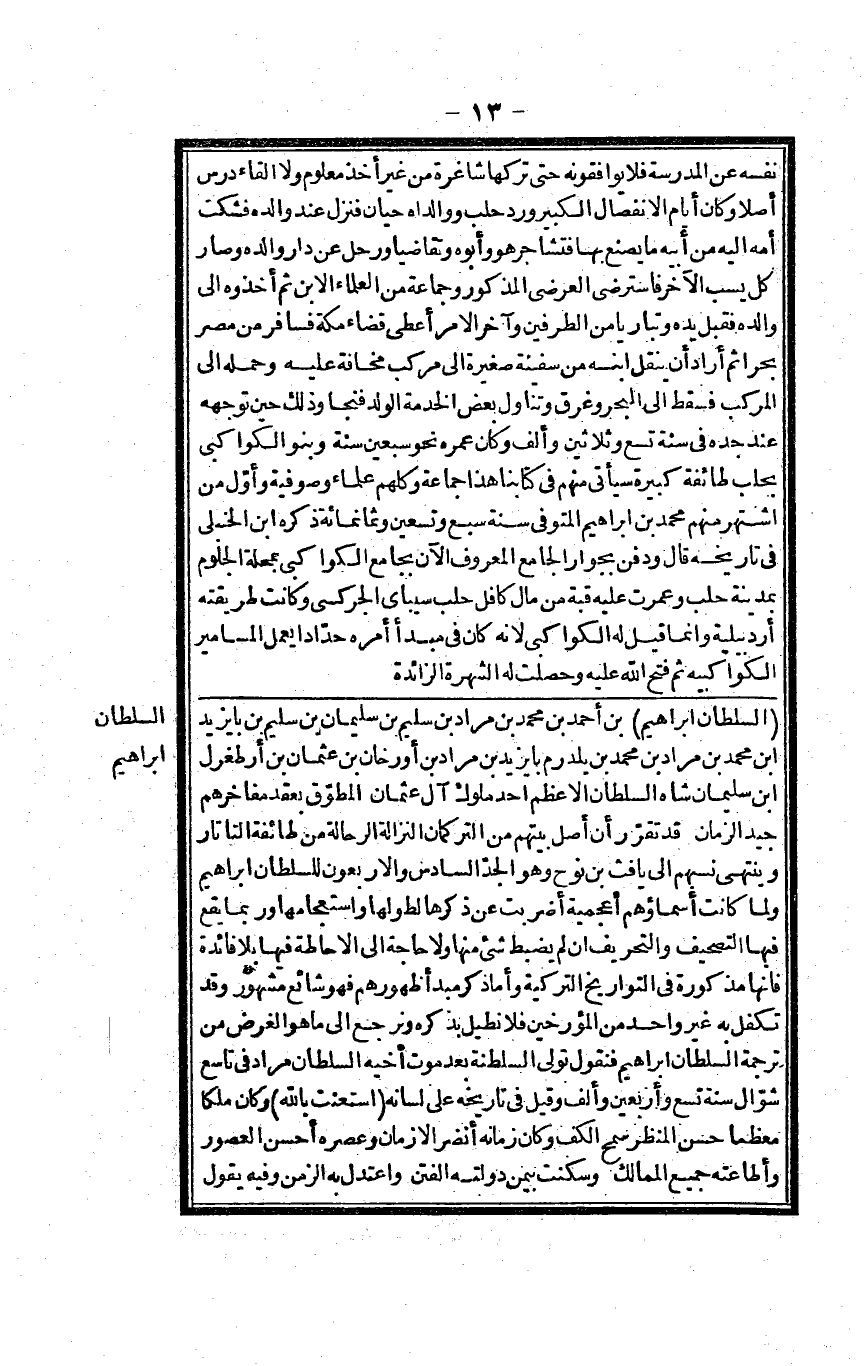 - ١٣ -
نفسه عن المدرسة فلا يوافقونه حتى تركها شاغرة من غير أخذ معلوم ولا القاء درس
أصلا وكان أيام الانفصال الكبير ورد حلب ووالداه حيان فنزل عند والده فشكت
أمه اليه من أبيه ما يصنع بها فتشاجر هو وأبوه وتقاضيا ورحل عن دار والده وصار
كل يسب الآخر فاسترضى العرضى المذكور وجماعة من العلماء الابن ثم أخذوه الى
والده فقبل يده وتباريا من الطرفين وآخر الامر أعطى قضاء مكة فسافر من مصر
بحرا ثم أراد أن ينقل ابنه من سفينة صغيرة الى مركب مخانة عليه وحمله الى
المركب فسقط الى البحر وغرق وتناول بعض الخدمة الولد فنجا وذلك حين توجهه
عند جده فى سنة تسع وثلاثين وألف وكان عمره نحو سبعين سنة وبنو الكواكبى
بحلب طائفة كبيرة سيأتى منهم فى كتابنا هذا جماعة وكلهم علماء وصوفية وأول من
اشتهر منهم محمد بن ابراهيم المتوفى سنة سبع وتسعين وثمانمائة ذكره ابن الحنبلى
فى تاريخه قال ودفن بجوار الجامع المعروف الآن بجامع الكواكبى بمحلة الجلوم
بمدينة حلب وعمرت عليه قبة من مال كافل حلب سيباى الجركسى وكانت طريقته
أردبيلية وانما قيل له الكواكبى لانه كان فى مبدأ أمره حدادا يعمل المسامير
الكواكبيه ثم فتح الله عليه وحصلت له الشهرة الزائدة
(السلطان ابراهيم) بن أحمد بن محمد بن مراد بن سليم بن سليمان بن سليم بن بايزيد
السلطان
ابن محمد بن مراد بن محمد بن يلدرم بايزيد بن مراد بن أورخان بن عثمان بن أرطغرل
ابراهيم
ابن سليمان شاه السلطان الاعظم احد ملوك آل عثمان المطوّق بعقد مفاخرهم
جيد الزمان قد تقرّر أن أصل بيتهم من التركمان النزالة الرحالة من طائفة التاتار
وينتهى نسبهم الى يافث بن نوح وهو الجدّ السادس والاربعون للسلطان ابراهيم
ولما كانت أسماؤهم أعجمية أضربت عن ذكرها لطولها واستعجامها وربما يقع
فيها التصحيف والتحريف ان لم يضبط شئ منها ولا حاجة الى الاحاطة فيها بلا فائدة
فانها مذكورة فى التواريخ التركية وأما ذكر مبدأ ظهورهم فهو شائع مشهور وقد
تكفل به غير واحد من المؤرخين فلا نطيل بذكره ونرجع الى ما هو الغرض من
ترجمة السلطان ابراهيم فنقول تولى السلطنة بعد موت أخيه السلطان مراد فى تاسع
شوّال سنة تسع وأربعين وألف وقيل فى تاريخه على لسانه (استعنت بالله) وكان ملكا
معظما حسن المنظر سمح الكف وكان زمانه أنضر الازمان وعصره أحسن العصور
وأطاعته جميع الممالك وسكنت بيمن دولته الفتن واعتدل به الزمن وفيه يقول